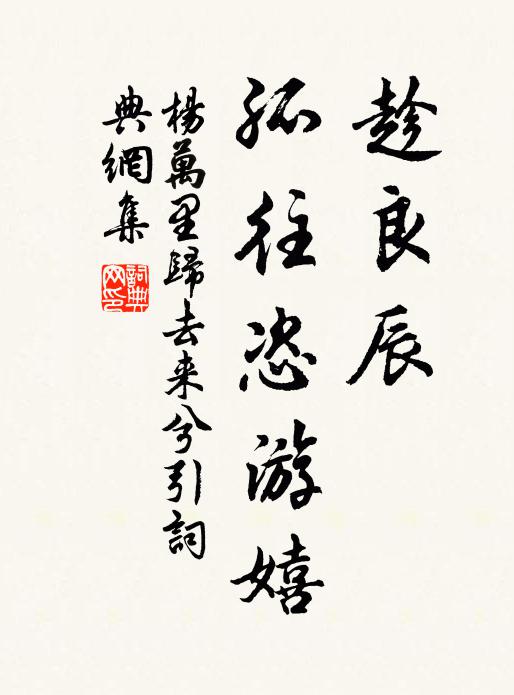 趁良辰
孤往恣游嬉
楊萬里歸去来兮引詞
典網集
詞典网印